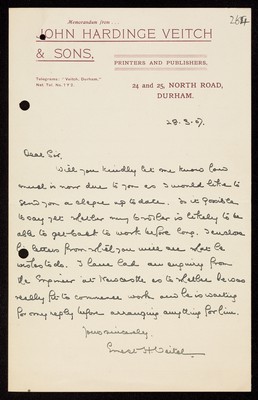 Memorandum from . . .
JOHN HARDINGE VEITCH
& SONS,
PRINTERS AND PUBLISHERS,
Telegrams: "Veitch, Durham."
Nat. Tel. No. 192.
24 and 25, NORTH ROAD,
DURHAM.
28. 3. 
Dear Sir,
Will you kindly let me know how
much is now due to you as I would like to
send you a cheque up to date. Is it possible
to say yet whether my brother is likely to be
able to get back to work before long. I enclose
letters from which you will see what he
wishes to do. I have had an enquiry from
the Engineer at Newcastle as to whether he was
really fit to commence work and he is waiting
for my reply before arranging anything for him.
Yours sincerely,
Ernest H Veitch